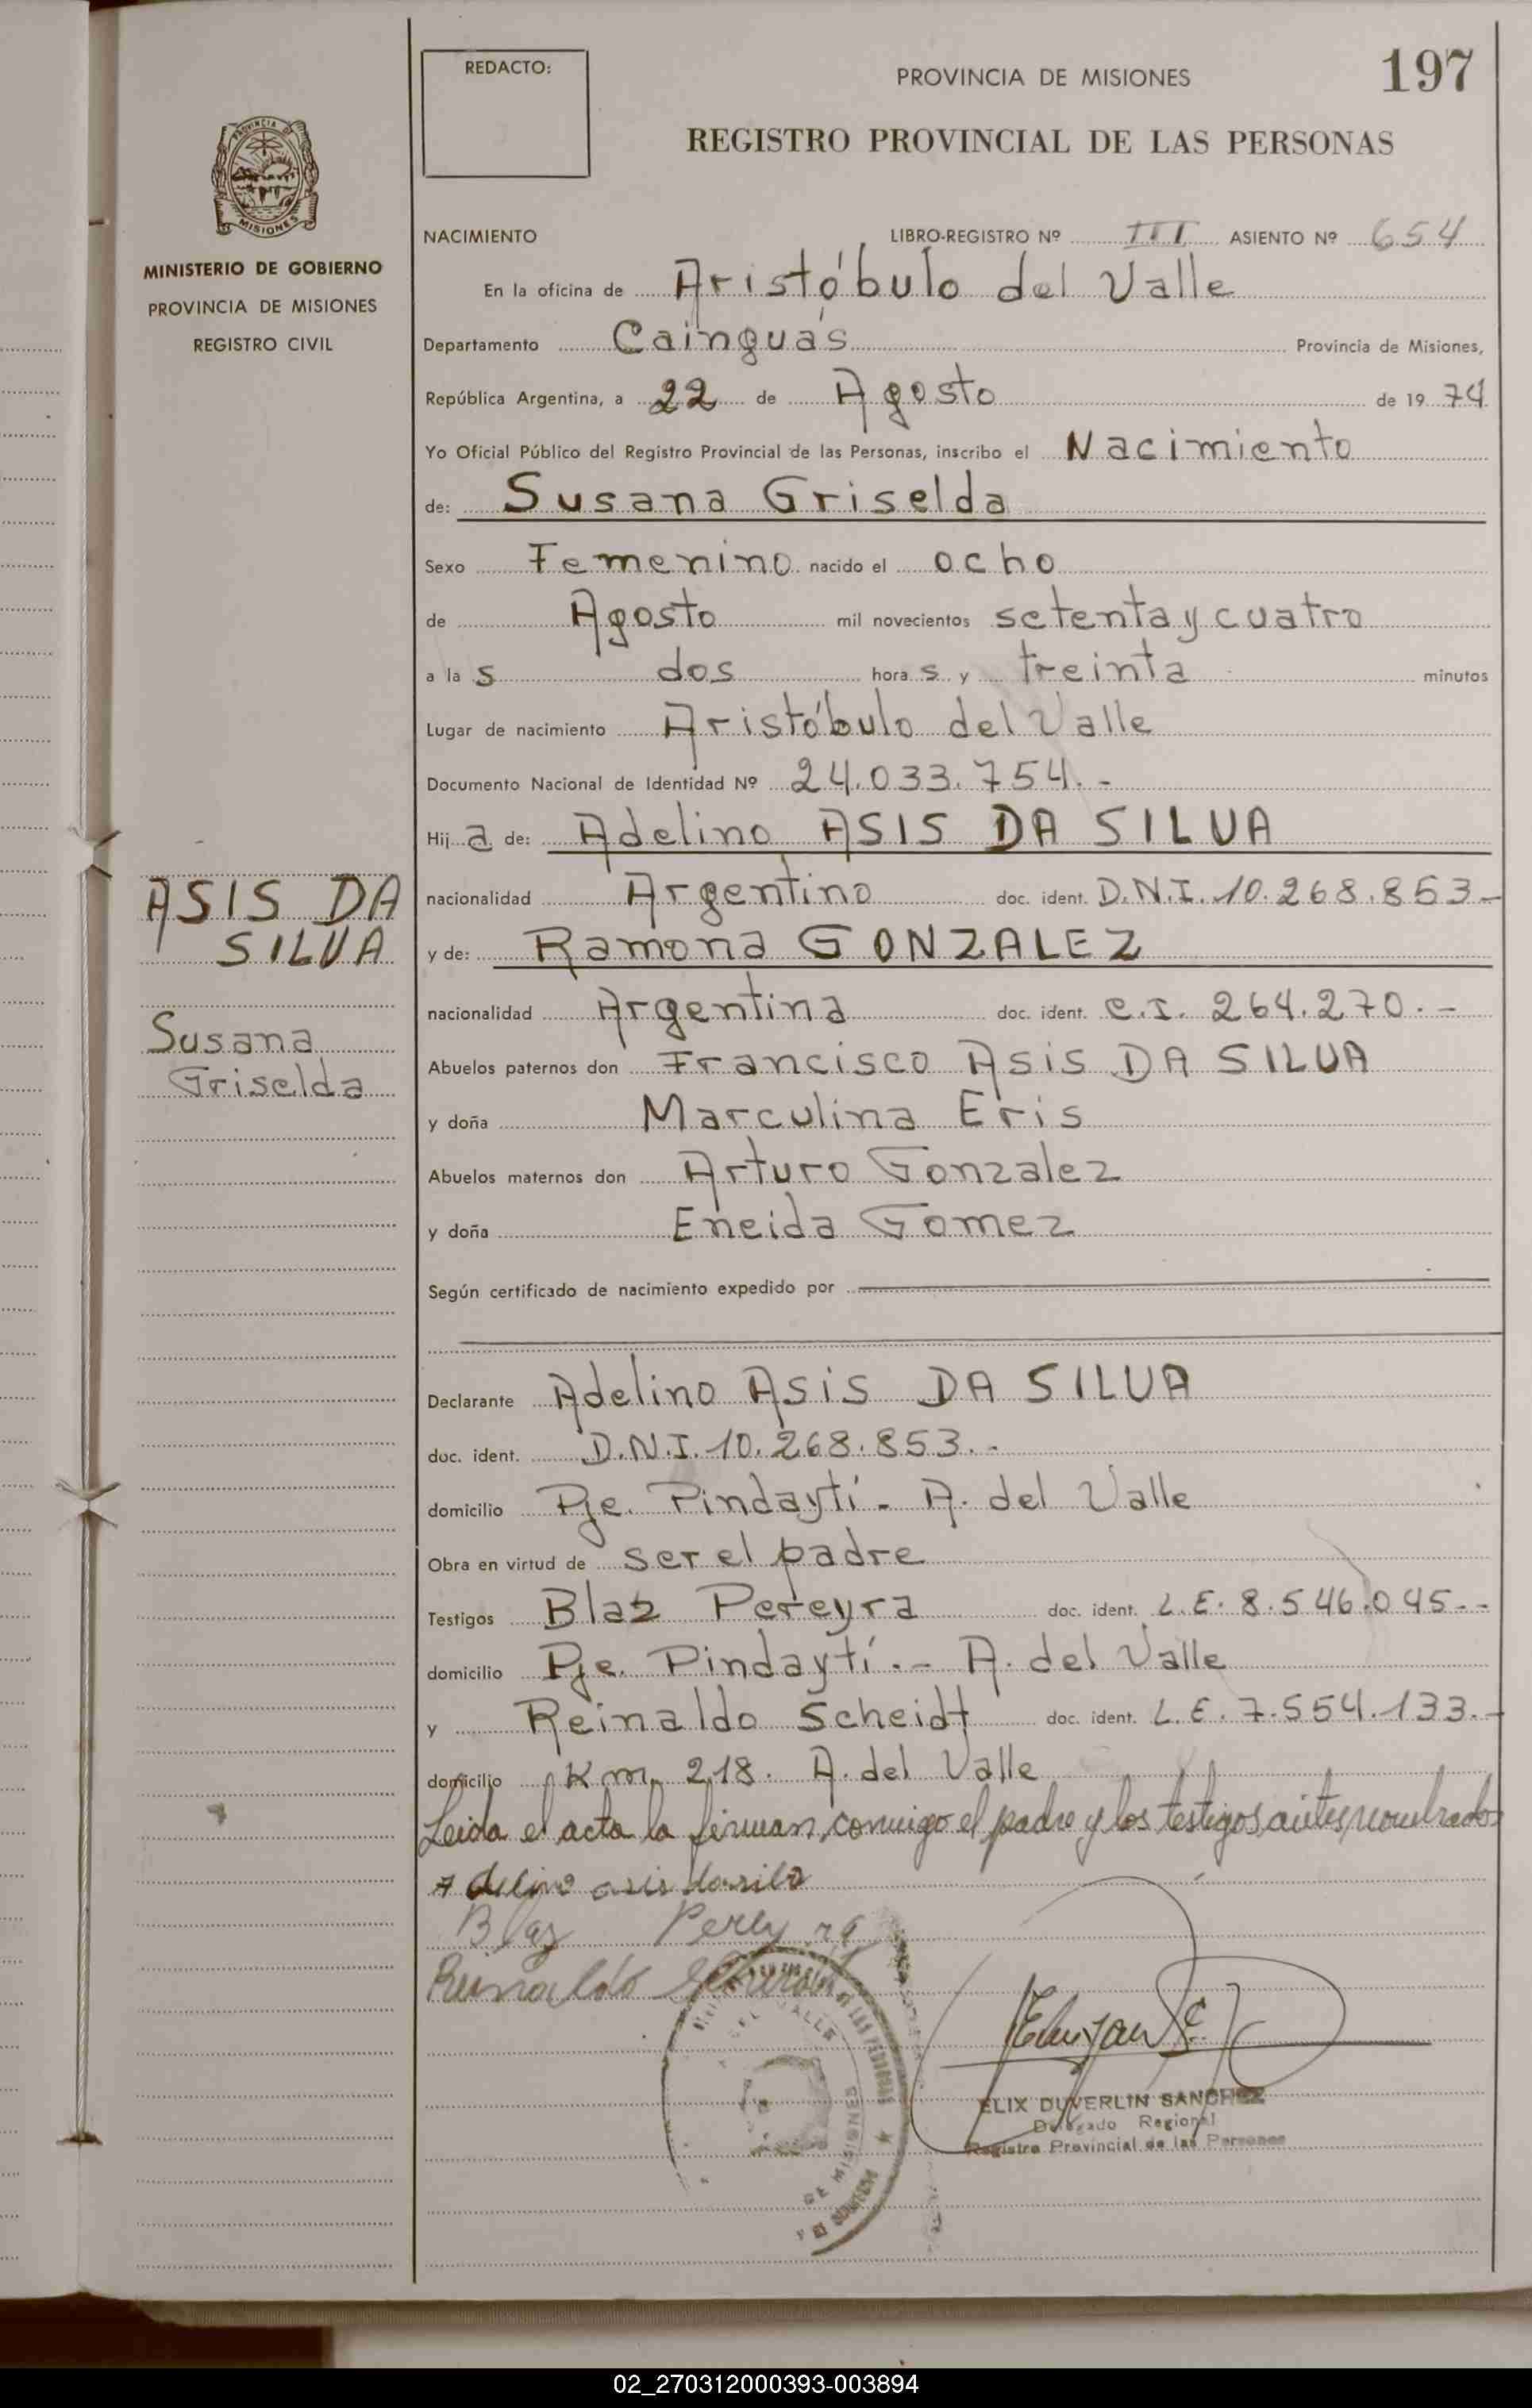 REDACTO:
PROVINCIA DE MISIONES
197
REGISTRO PROVINCIAL DE LAS PERSONAS
PROVINCIA DE
MISIONES
MINISTERIO DE GOBIERNO
PROVINCIA DE MISIONES
REGISTRO CIVIL
NACIMIENTO LIBRO-REGISTRO Nº III ASIENTO Nº 654
En la oficina de Aristóbulo del Valle
Departamento Cainguás Provincia de Misiones,
República Argentina, a 22 de Agosto de 19 74
Yo Oficial Público del Registro Provincial de las Personas, inscribo el Nacimiento
de: Susana Griselda
Sexo Femenino nacido el ocho
de Agosto mil novecientos setenta y cuatro
a la s dos hora s y treinta minutos
Lugar de nacimiento Aristóbulo del Valle
Documento Nacional de Identidad Nº 24.033.754.-
Hij a de: Adelino ASIS DA SILVA
nacionalidad Argentino doc. ident. D.N.I. 10.268.853-
y de: Ramona GONZALEZ
nacionalidad Argentina doc. ident. C.I. 264.270.-
Abuelos paternos don Francisco Asis DA SILVA
y doña Marculina Eris
Abuelos maternos don Arturo Gonzalez
y doña Eneida Gomez
Según certificado de nacimiento expedido por
Declarante Adelino Asis DA SILVA
doc. ident. D.N.I. 10.268.853.-
domicilio Pje. Pindaytí - A. del Valle
Obra en virtud de ser el padre
Testigos Blaz Pereyra doc. ident. L.E. 8.546.045--
domicilio Pje. Pindaytí.- A. del Valle
y Reinaldo Scheidt doc. ident. L.E. 7.554.133.-
domicilio Km. 218. A. del Valle
Leida el acta la firman, conmigo el padre y los testigos antes nombrados
Adelino asis da silva
Blaz Pereyra
Reinaldo Scheidt
ELIX DUVERLIN SANCHEZ
Delegado Regional
Registro Provincial de las Personas
DEL VALLE
DE LAS PERSONAS
DE MISIONES
ASIS DA
SILVA
Susana
Griselda
02_270312000393-003894